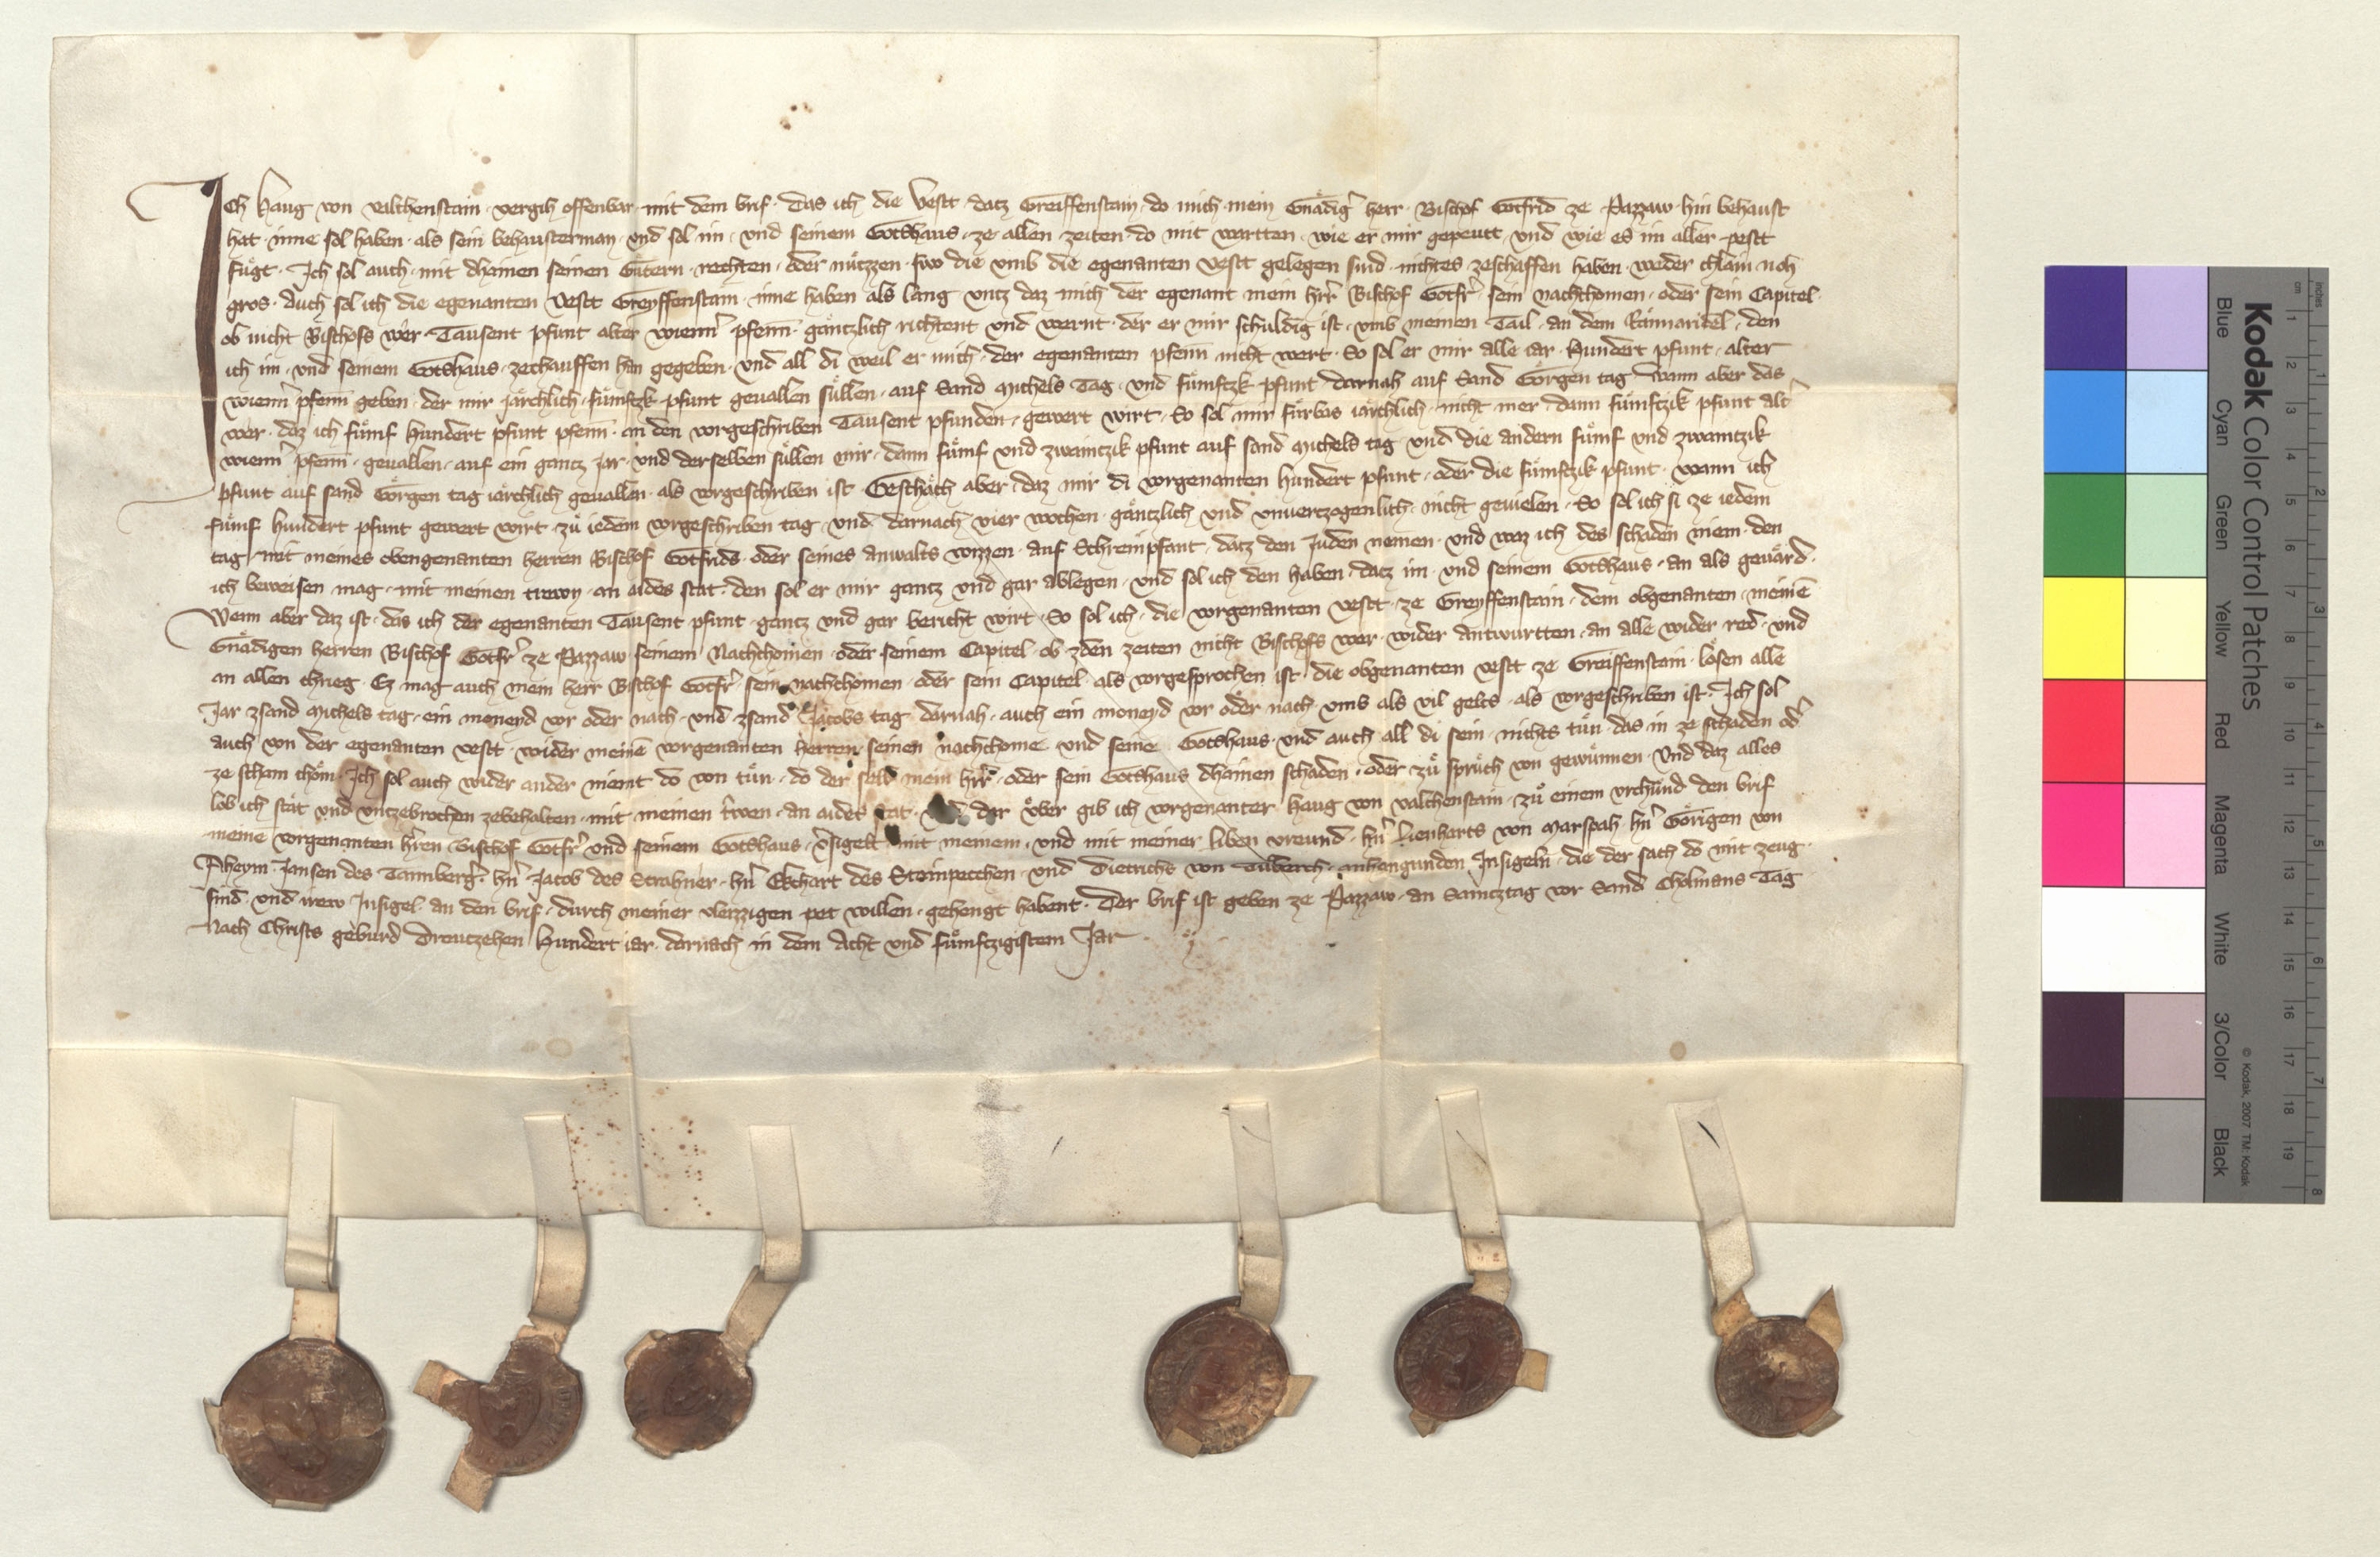 Ich Haug von Valchenstain vergih offenbar mit dem brif. das ich die Vestt datz Greiffenstain do mich mein Gnädig herr Bischof Gotfrid ze Pazzaw hin behaust
hat inne sol haben als sein behausterman und sol im und seinem Gotshaus ze allen zeiten do mit wartten wie er mir gepeutt und wie es im aller pestt
fügt. Ich sol auch mit dhainen seinen Gütern rechten oder nützzen swo die umb die egenanten Vestt gelegen sind nichtes zeschaffen haben weder chlain noch
gros. Auch sol ich die egenanten Vestt Greyffenstain inne haben als lang untz daz mich der egenant mein hrr Bischof Gotfr sein nachchomen oder sein Capitel
ob nicht Bischofs wer Tausent pfunt alter wienn pfenn gäntzlich richtent und wernt der er mir schuldig ist umb meinen Tail an dem Rännaridel den
ich im und seinem Gotshaus zechauffen han gegeben und all di weil er mich der egenanten pfenn nicht wert. So sol er mir alle iar Hundert pfunt alter
wienn pfenn geben der mir järchlich fümftzk pfunt gevallen süllen auf Sand Michels Tag und fümftzk pfunt darnah auf Sand Görgen tag Wann aber das
wer daz ich fümf Hundert pfunt pfenn an den vorgeschriben Tausent pfunden gewert wirt. So sol mir fürbas iärchlich nicht mer dann fümftzik pfunt alt
wienn pfenn gevallen auf ein gantz Jar und derselben süllen mir dann fümf und zwaintzik pfunt auf sand Michels tag und die andern fümf und zwaintzik
pfunt auf sand Görgen tag iärchlich gevallen als vorgeschriben ist Geschäch aber daz mir di vorgenanten hundert pfunt oder die fümftzik pfunt wann ich
fümf hundert pfunt gewert wirt zu iedem vorgeschriben tag und darnach vier wochen gäntzlich und unvertzogenlich nicht gevielen So sol ich si ze iedem
tag mit meines obengenanten herren Bischof Gotfrids oder seines anwalts wizzen auf Schreinpfant datz den Juden nemen und waz ich des schaden niem den
ich beweisen mag mit meinen trewn an aides stat den sol er mir gantz und gar ablegen und sol ich den haben datz im und seinem Gotshaus an als gevärd.
Wenn aber daz ist das ich der egenanten Tausent pfunt gantz und gar bericht wirt So sol ich die vorgenanten Vestt ze Greyffenstain dem obgenanten meine
Gnädigen herren Bischof Gotfr ze Pazzaw seinem Nachchomen oder seinem Capitel ob zden zeiten nicht Bischofs wer wider antwurtten an alle wider red und
an allen chrieg. Ez mag auch mein herr Bischof Gotfr sein nachchomen oder sein Capitel als vorgesprochen ist die obgenanten Vestt ze Greiffenstain lösen alle
Jar zsand Michels tag ein moneyd vor oder nach und zsand Jacobs tag darnah auch ein moneyd vor oder nach umb als vil gelts als vorgeschriben ist. Ich sol
auch von der egenanten Vestt wider meine vorgenanten herren seinen nachchome und seine Gotshaus und auch all di sein nichts tün das in ze schaden od
ze scham chöm. Ich sol auch wider ander niemt do von tün do der selb mein hrr oder sein Gotshaus dhainen schaden oder zu sprüch von gewünnen Und daz alles
lob ich stät und unzebrochen zebehalten mit meinen trwen an aides stat dar über gib ich vorgenanter Haug von Valchenstain zu einem urchünd den brif
meine vorgenanten hren Bischof Gotfr und seinem Gotshaus versigelt mit meinem und mit meiner liben vreund hn Lienharts von Marspah hn Görigen von
Aheym Jansen des Tannberg hn Jacob des Strahner hn Ekchart des Steinpecchen und Dietrichs von anhangunden Insigeln die der sach do mit zeug
sind und irew Insigel an den brif durch meiner vleizzigen pet willen gehengt habent. Der brif ist geben ze Pazzaw an Samtztag vor Sand Cholmans Tag
Nach Christs geburd Dreutzehen Hundert iar darnach in dem Acht und fümftzigistem Jar
Kodak Color Control Patches
Blue Cyan Green Yellow Red Magenta White 3/Color Black
© Kodak, 2007 TM: Kodak
cm 1 2 3 4 5 6 7 8 9 10 11 12 13 14 15 16 17 18 19
inches 1 2 3 4 5 6 7 8